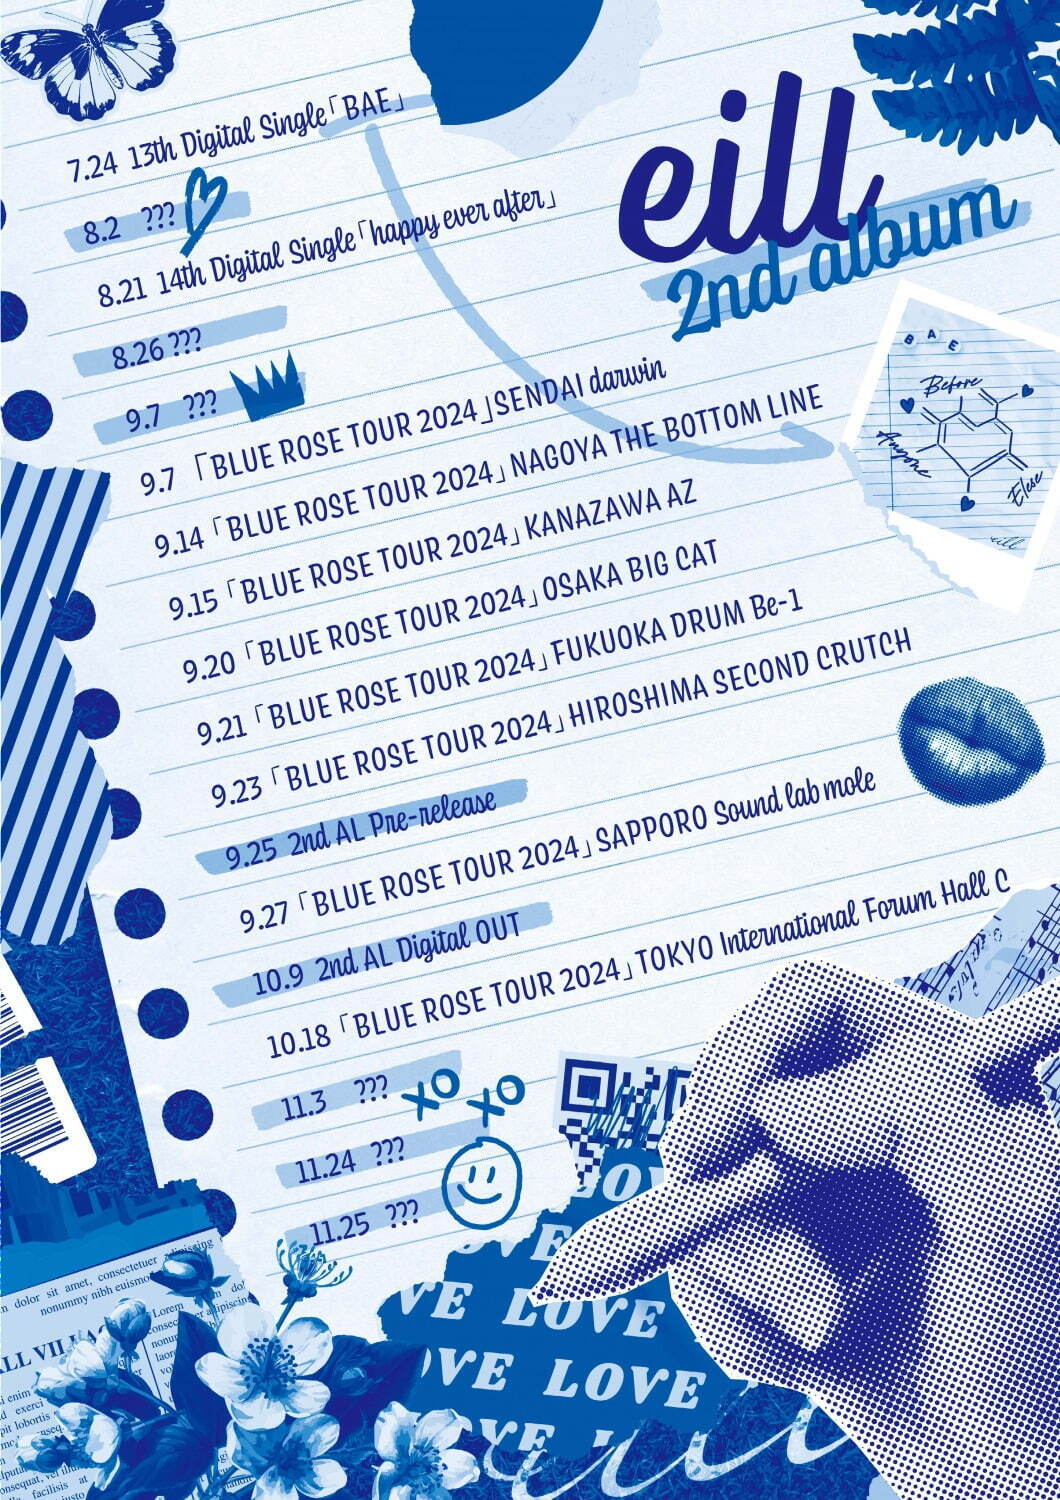 eill
2nd album
7.24 13th Digital Single「BAE」
8.2 ???
8.21 14th Digital Single「happy ever after」
8.26 ???
9.7 ???
9.7 「BLUE ROSE TOUR 2024」SENDAI darwin
9.14「BLUE ROSE TOUR 2024」NAGOYA THE BOTTOM LINE
9.15「BLUE ROSE TOUR 2024」KANAZAWA AZ
9.20「BLUE ROSE TOUR 2024」OSAKA BIG CAT
9.21「BLUE ROSE TOUR 2024」FUKUOKA DRUM Be-1
9.23「BLUE ROSE TOUR 2024」HIROSHIMA SECOND CRUTCH
9.25 2nd AL Pre-release
9.27「BLUE ROSE TOUR 2024」SAPPORO Sound lab mole
10.9 2nd AL Digital OUT
10.18「BLUE ROSE TOUR 2024」TOKYO International Forum Hall C
11.3 ???
XO XO
11.24 ???
11.25 ???
BAE
Before
Anyone
Else
eill
LOVE
LOVE
LOVE
dolor sit amet, consectetuer adipiscing
nonummy nibh euismo
Lorem